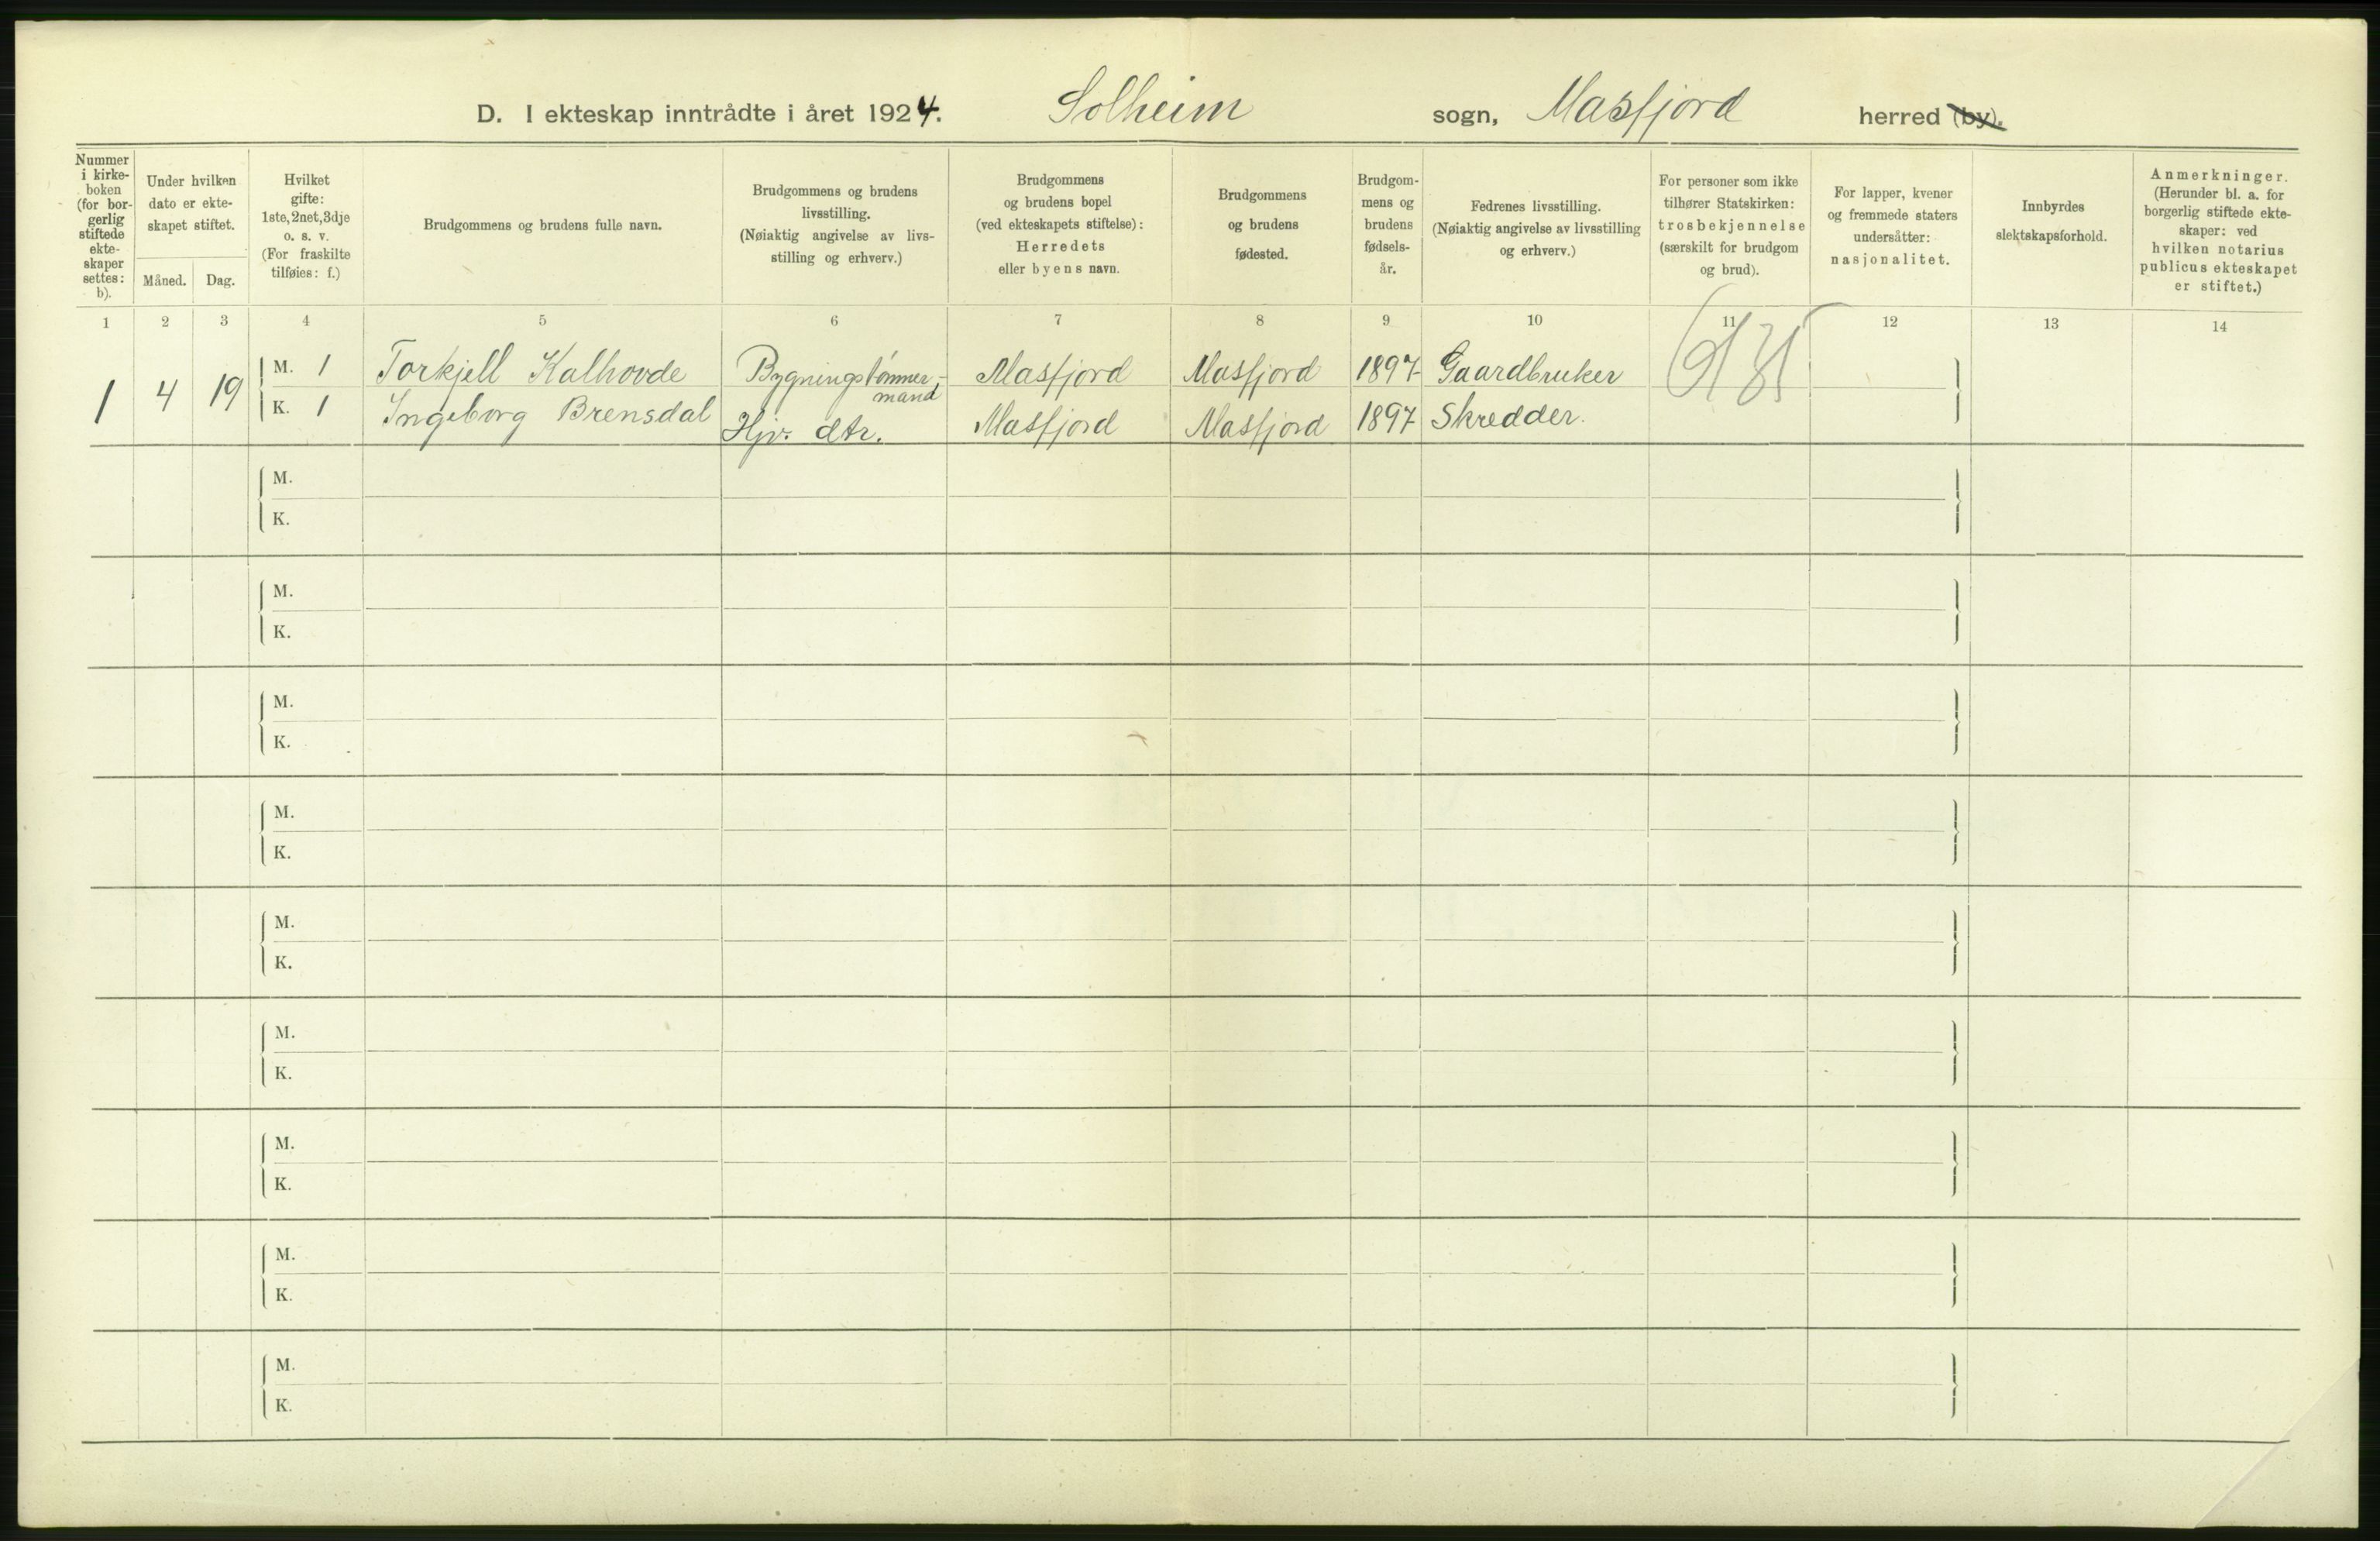 D. I ekteskap inntrådte i året 1924. Solheim sogn, Masfjord herred (by).
Nummer
i kirke-
boken
(for bor-
gerlig
stiftede
ekte-
skaper
settes:
b).
Under hvilken
dato er ekte-
skapet stiftet.
Måned. Dag.
Hvilket
gifte:
1ste, 2net, 3dje
o. s. v.
(For fraskilte
tilføies: f.)
Brudgommens og brudens fulle navn.
Brudgommens og brudens
livsstilling.
(Nøiaktig angivelse av livs-
stilling og erhverv.)
Brudgommens
og brudens bopel
(ved ekteskapets stiftelse):
Herredets
eller byens navn.
Brudgommens
og brudens
fødested.
Brudgom-
mens og
brudens
fødsels-
år.
Fedrenes livsstilling.
(Nøiaktig angivelse av livsstilling
og erhverv.)
For personer som ikke
tilhører Statskirken:
trosbekjennelse
(særskilt for brudgom
og brud).
For lapper, kvener
og fremmede staters
undersåtter:
nasjonalitet.
Innbyrdes
slektskapsforhold.
Anmerkninger.
(Herunder bl. a. for
borgerlig stiftede ekte-
skaper: ved
hvilken notarius
publicus ekteskapet
er stiftet.)
1 2 3 4 5 6 7 8 9 10 11 12 13 14
1 4 19 M. 1 Torkjell Kalhovde Bygningstømmer-
mand Masfjord Masfjord 1897 Gaardbruker
K. 1 Ingeborg Brensdal Hjv. dtr. Masfjord Masfjord 1897 Skredder.
M.
K.
M.
K.
M.
K.
M.
K.
M.
K.
M.
K.
M.
K.
M.
K.
M.
K.